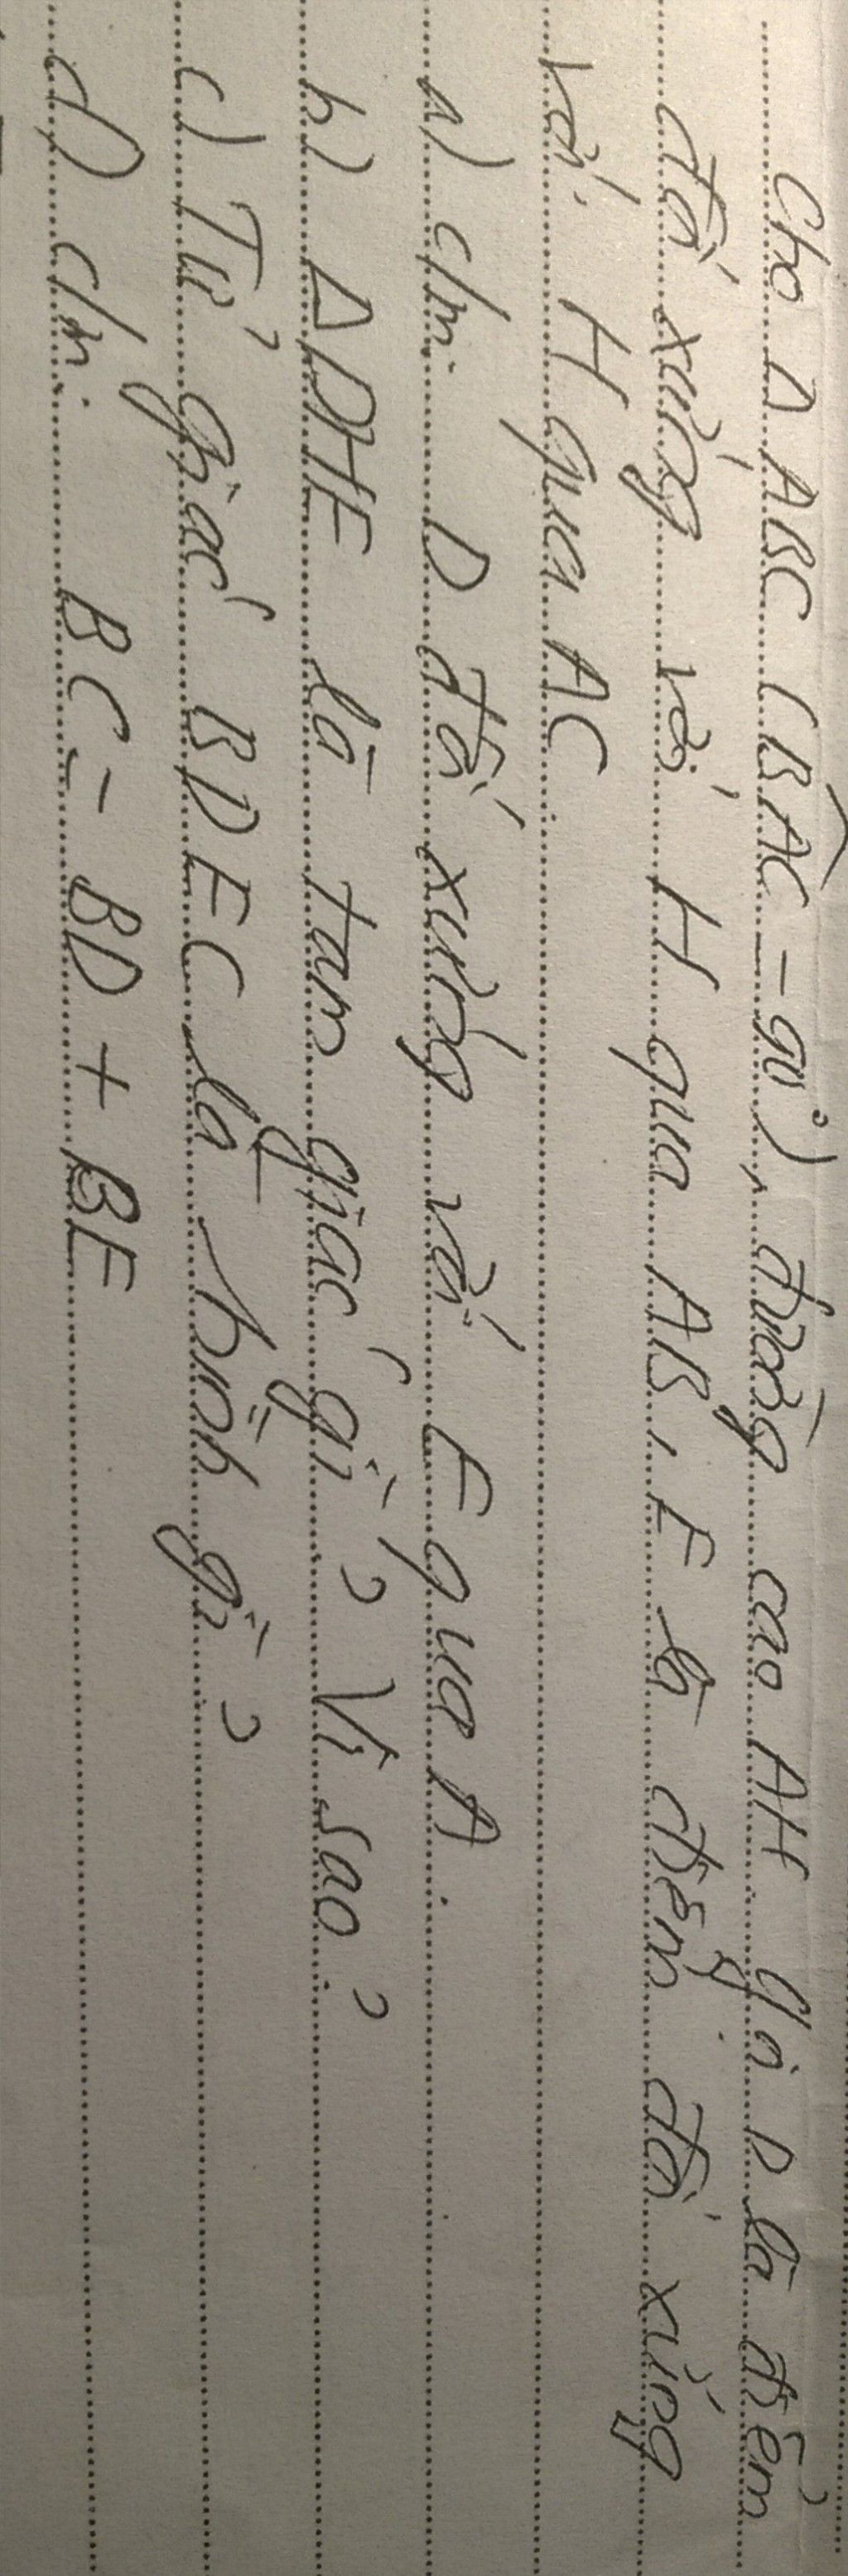 Cho Δ ABC (BAC = 90°), đường cao AH. Gọi D là điểm
đối xứng với H qua AB, E là điểm đối xứng
với H qua AC
a) c/m: D đối xứng với E qua A.
b) Δ DHE là tam giác gì? Vì sao?
c) Tứ giác BDEC là hình gì?
d) c/m: BC = BD + BE